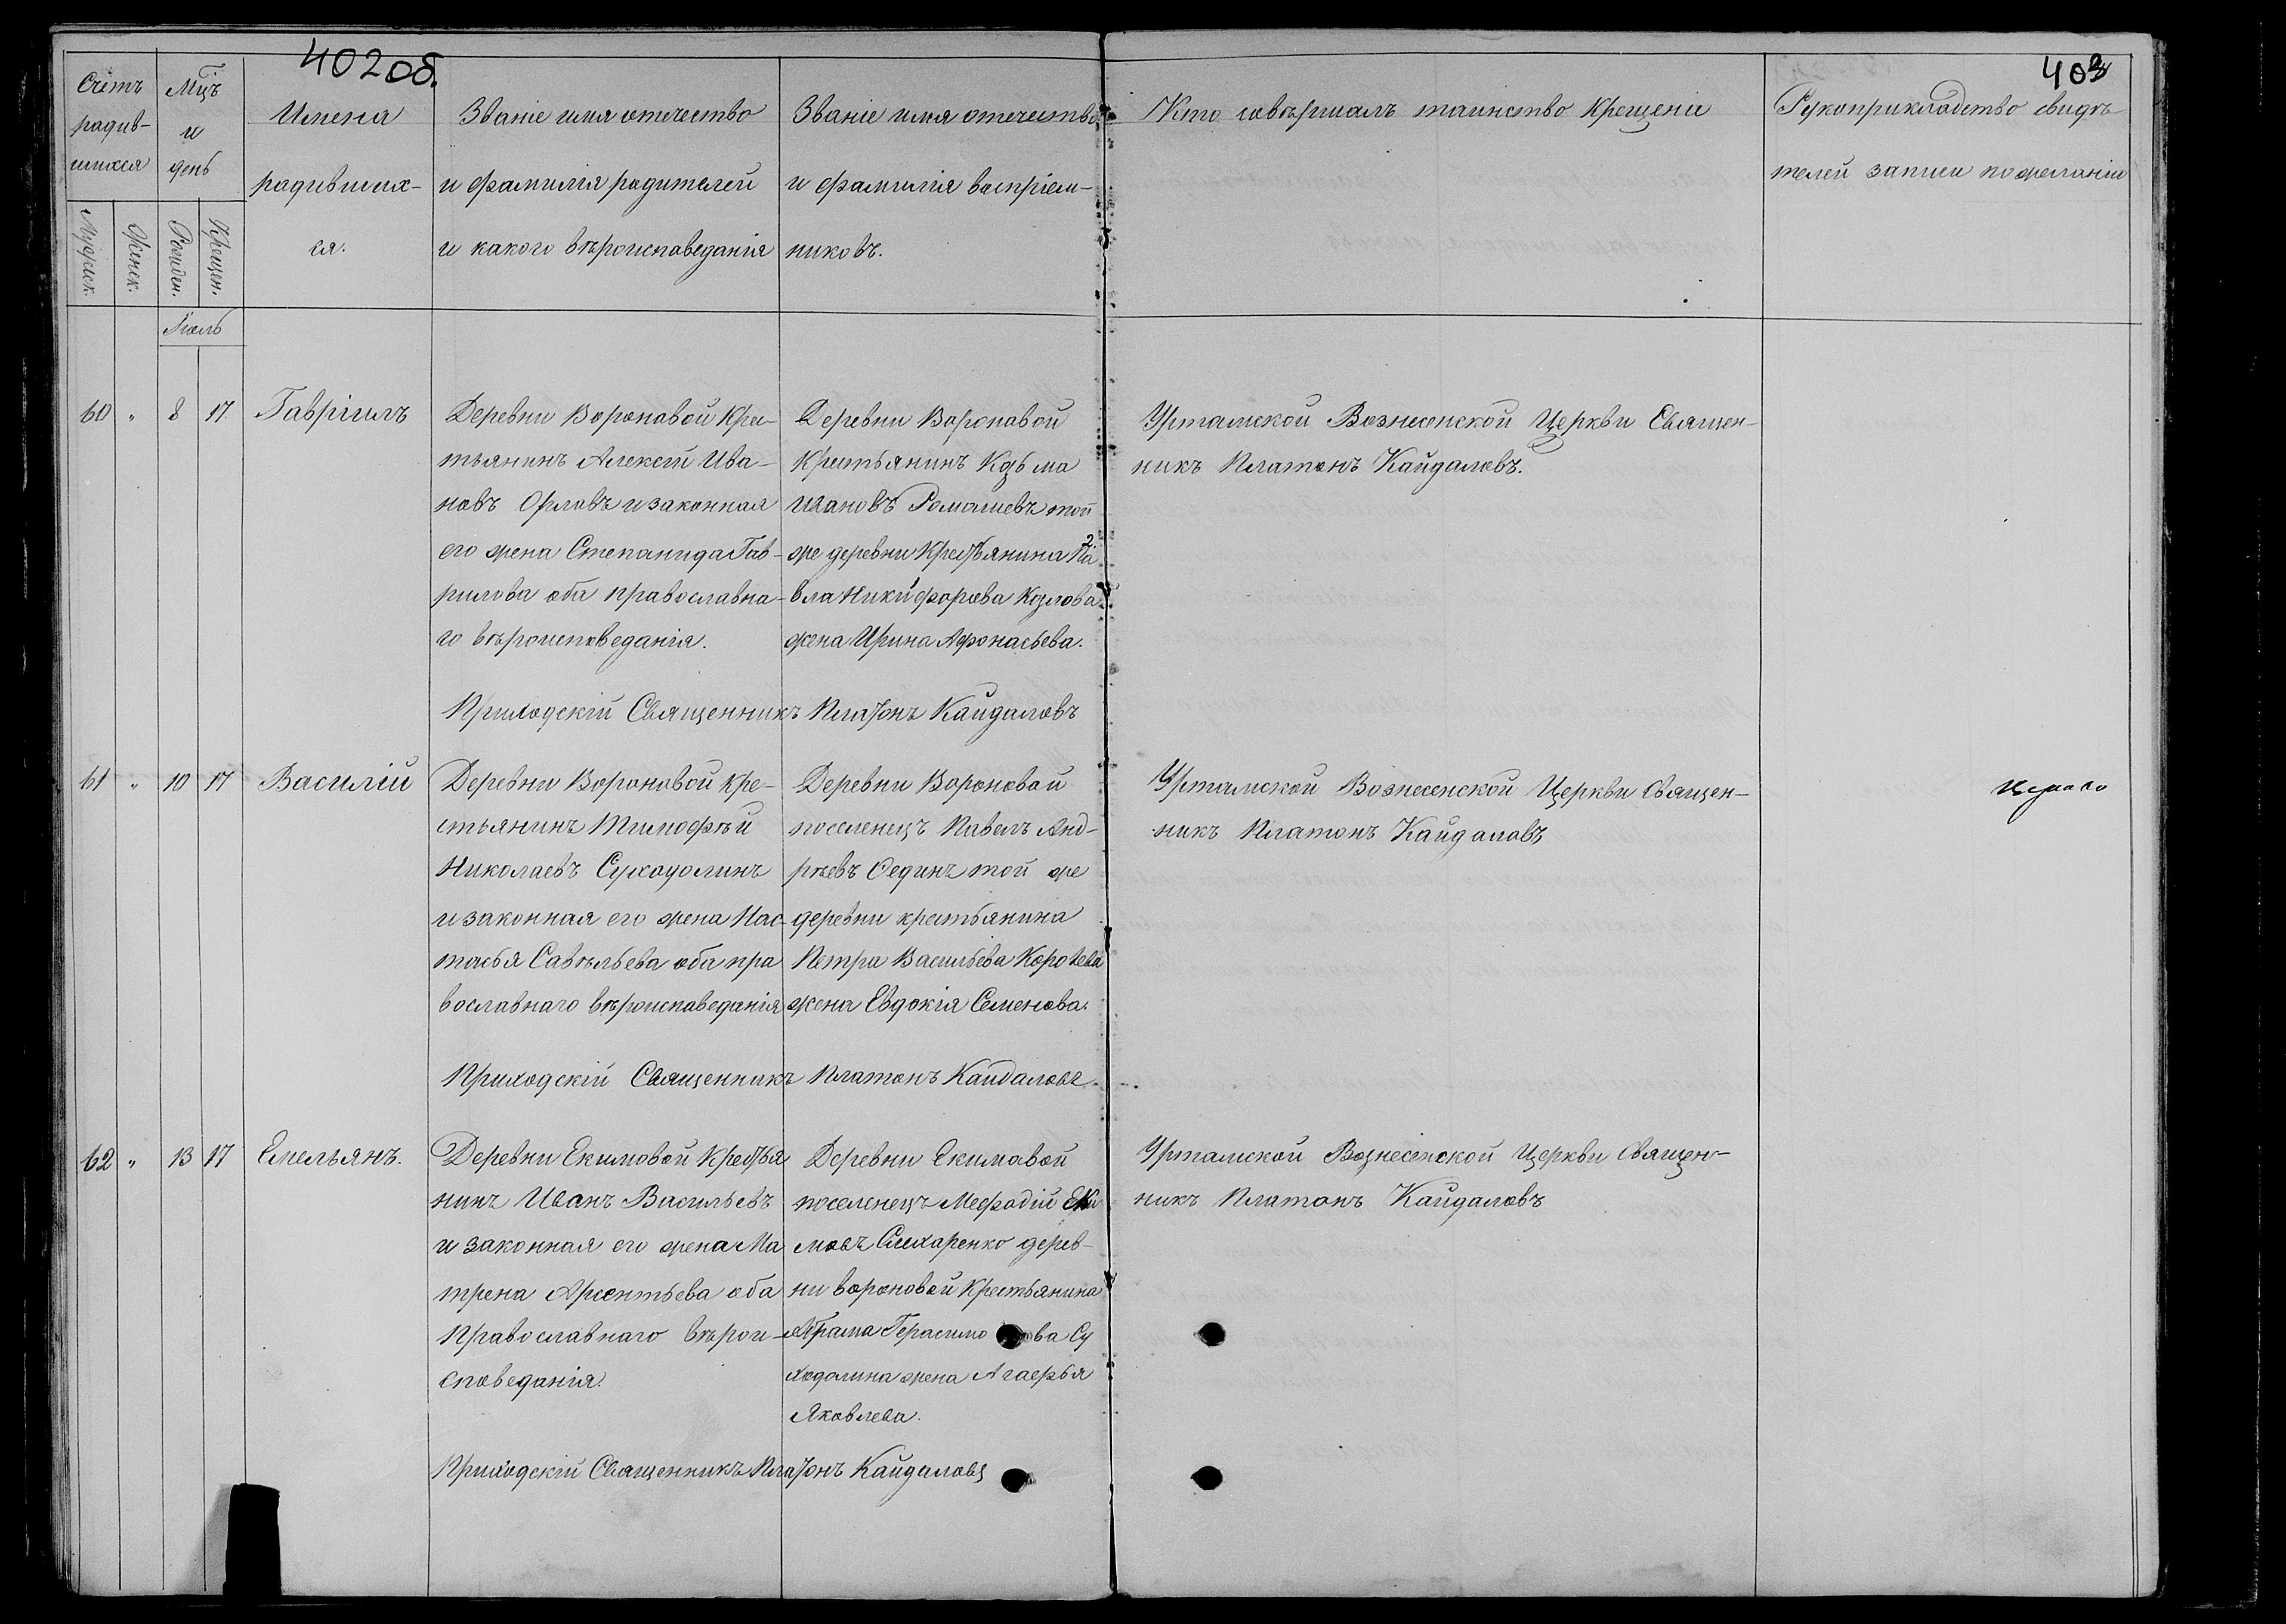 402об.
403
Счётъ
родив-
шихся
Мужск.
Женск.
Мцъ
и
день
Рожден.
Крещен.
Имена
родивших-
ся.
Званіе имя отчество
и фамилія родителей
и какого вѣроисповеданія
Званіе имя отечество
и фамилія воспріем-
никовъ.
Кто совѣршалъ таинство крещенія
Рукоприкладство свидѣ-
телей записи по желанію
Іюль
60 " 8 17 Гавріилъ
Деревни Вороновой кре-
тьянинъ Алексѣй Ива-
новъ Орловъ и законная
его жена Степанида Гав-
рилова оба православна-
го вѣроисповеданія.
Деревни Вороновой
Крестьянинъ Козьма
Ивановъ Ромашевъ той
же деревни Крестьянина Па
вла Никифорова Козлова
жена Ирина Афонасьева.
Уртамской Вознесенской Церкви Священ-
никъ Платонъ Кайдаловъ.
Приходскій Священникъ Платонъ Кайдаловъ
61 " 10 17 Василій
Деревни Вороновой кре-
стьянинъ Тимофѣй
Николаевъ Суходолинъ
и законная его жена Нас-
тасья Савѣльева оба пра
вославнаго вѣроисповеданія
Деревни Вороновой
поселенецъ Павелъ Анд-
рѣевъ Сединъ той же
деревни крестьянина
Петра Васильева
жена Евдокія Семенова.
Уртамской Вознесенской Церкви Священ-
никъ Платонъ Кайдаловъ
Приходскій Священникъ Платонъ Кайдаловъ.
62 " 13 17 Емельянъ.
Деревни Екимовой Крестья
нинъ Иванъ Васильевъ
и законная его жена Ма
трена Арсентьева оба
Православнаго вѣрои-
споведанія.
Деревни Екимовой
поселенецъ Мефодій Еки
мовъ Слихаренко дерев-
ни вороновой Крестьянина
Абрама Герасимова Су
ходолина жена Агафья
Яковлева.
Уртамской Вознесенской Церкви Священ-
никъ Платонъ Кайдаловъ
Приходскій Священникъ Платонъ Кайдаловъ